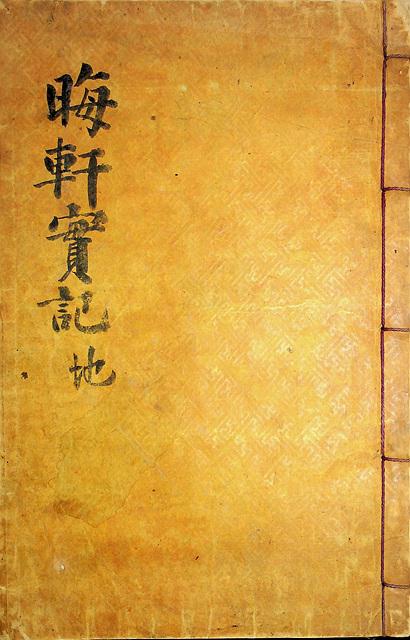 晦軒實記 地